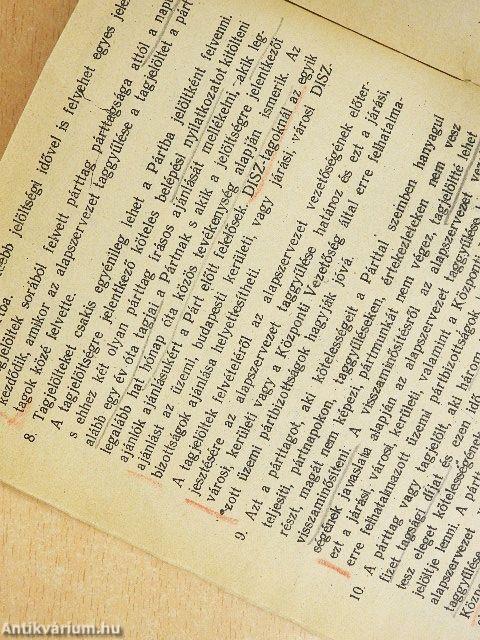 tebb jelöltségi idővel is felvehet egyes jele
ba.
agjelöltek sorából felvett párttag párttagsága attól a nap
kezdődik, amikor az alapszervezet taggyűlése a tagjelöltet a párt
tagok közé felvette.
8. Tagjelölteket csakis egyénileg lehet a Pártba jelöltként felvenni.
A tagjelöltségre jelentkező köteles belépési nyilatkozatot kitölteni
s ehhez két olyan párttag írásos ajánlását mellékelni, akik leg-
alább egy év óta tagjai a Pártnak s akik a jelöltségre jelentkezőt
legalább hat hónap óta közös tevékenység alapján ismerik. Az
ajánlók ajánlásukért a Párt előtt felelősek DISZ-tagoknál az egyik
ajánlást az üzemi, budapesti kerületi, vagy járási, városi DISZ-
bizottságok ajánlása helyettesítheti.
A tagjelöltek felvételéről az alapszervezet vezetőségének előter-
jesztésére az alapszervezet taggyűlése határoz és ezt a járási,
városi, kerületi vagy a Központi Vezetőség által erre felhatalma-
zott üzemi pártbizottságok hagyják jóvá.
9. Azt a párttagot, aki kötelességeit a Párttal szemben hanyagul
teljesíti, pártnapokon, taggyűléseken, értekezleteken nem vesz
részt, magát nem képezi, pártmunkát nem végez, tagjelöltté lehet
visszaminősíteni. A visszaminősítésről az alapszervezet veze
ségének javaslata alapján az alapszervezet taggyűlése
ezt a járási, városi kerületi, valamint a Központi
erre felhatalmazott üzemi pártbizottságok
10. A párttag vagy tagjelölt, aki három
fizet tagsági díjat és ezen idő
tesz eleget kötelességének
jelöltje lenni. A párt
alapszervezet
taggyűlése
Közp
Antikvárium.hu